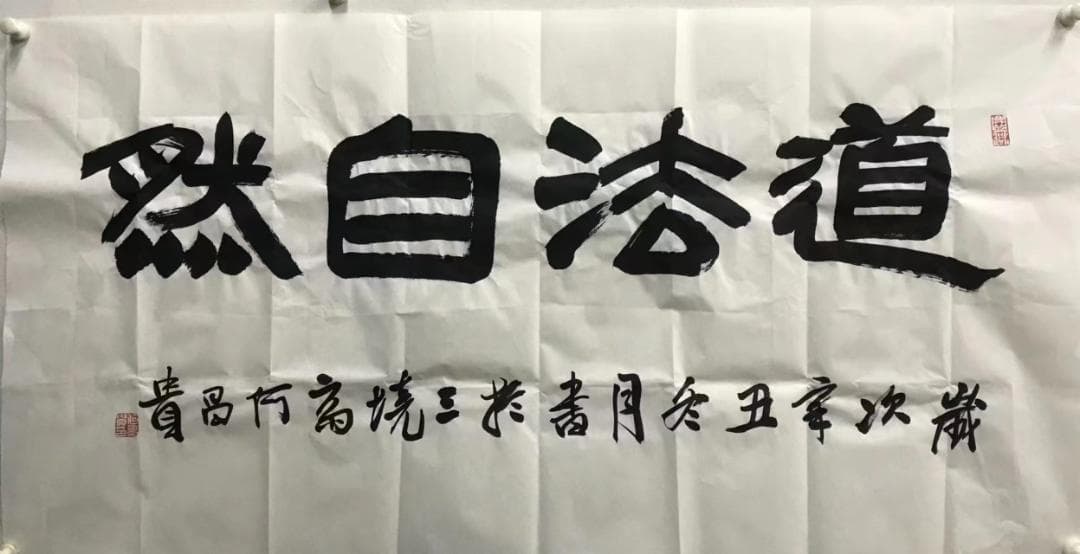 道法自然
歲次辛丑冬月書於三境斋何昌貴